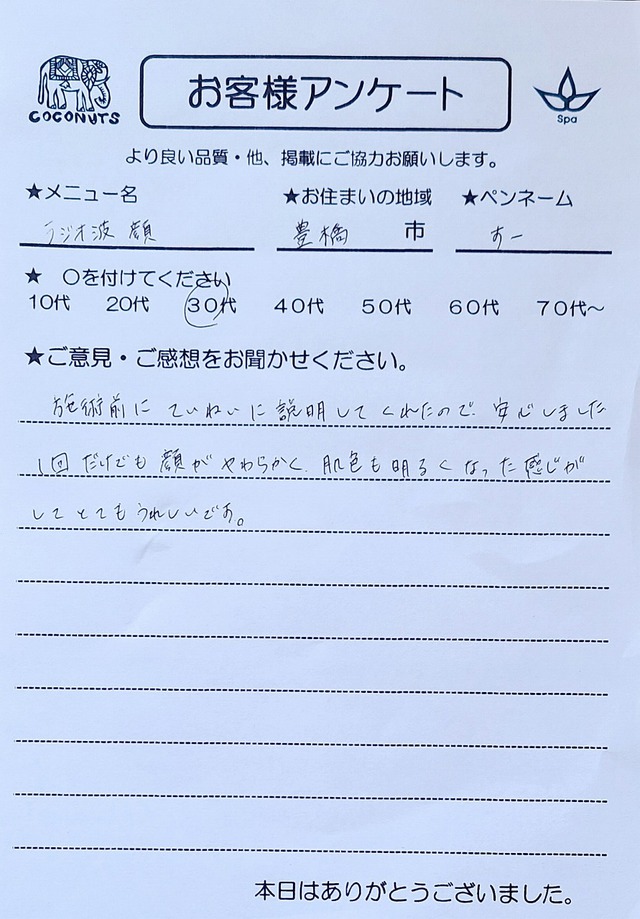 COCONUTS
お客様アンケート
Spa
より良い品質・他、掲載にご協力お願いします。
★メニュー名 ★お住まいの地域 ★ペンネーム
ラジオ波 顔 豊橋 市 すー
★ 〇を付けてください
10代 20代 30代 40代 50代 60代 70代～
★ご意見・ご感想をお聞かせください。
施術前に ていねいに 説明して くれたので 安心しました
1回だけでも 顔が やわらかく 肌色も 明るく なった 感じが
して とても うれしいです。
本日はありがとうございました。